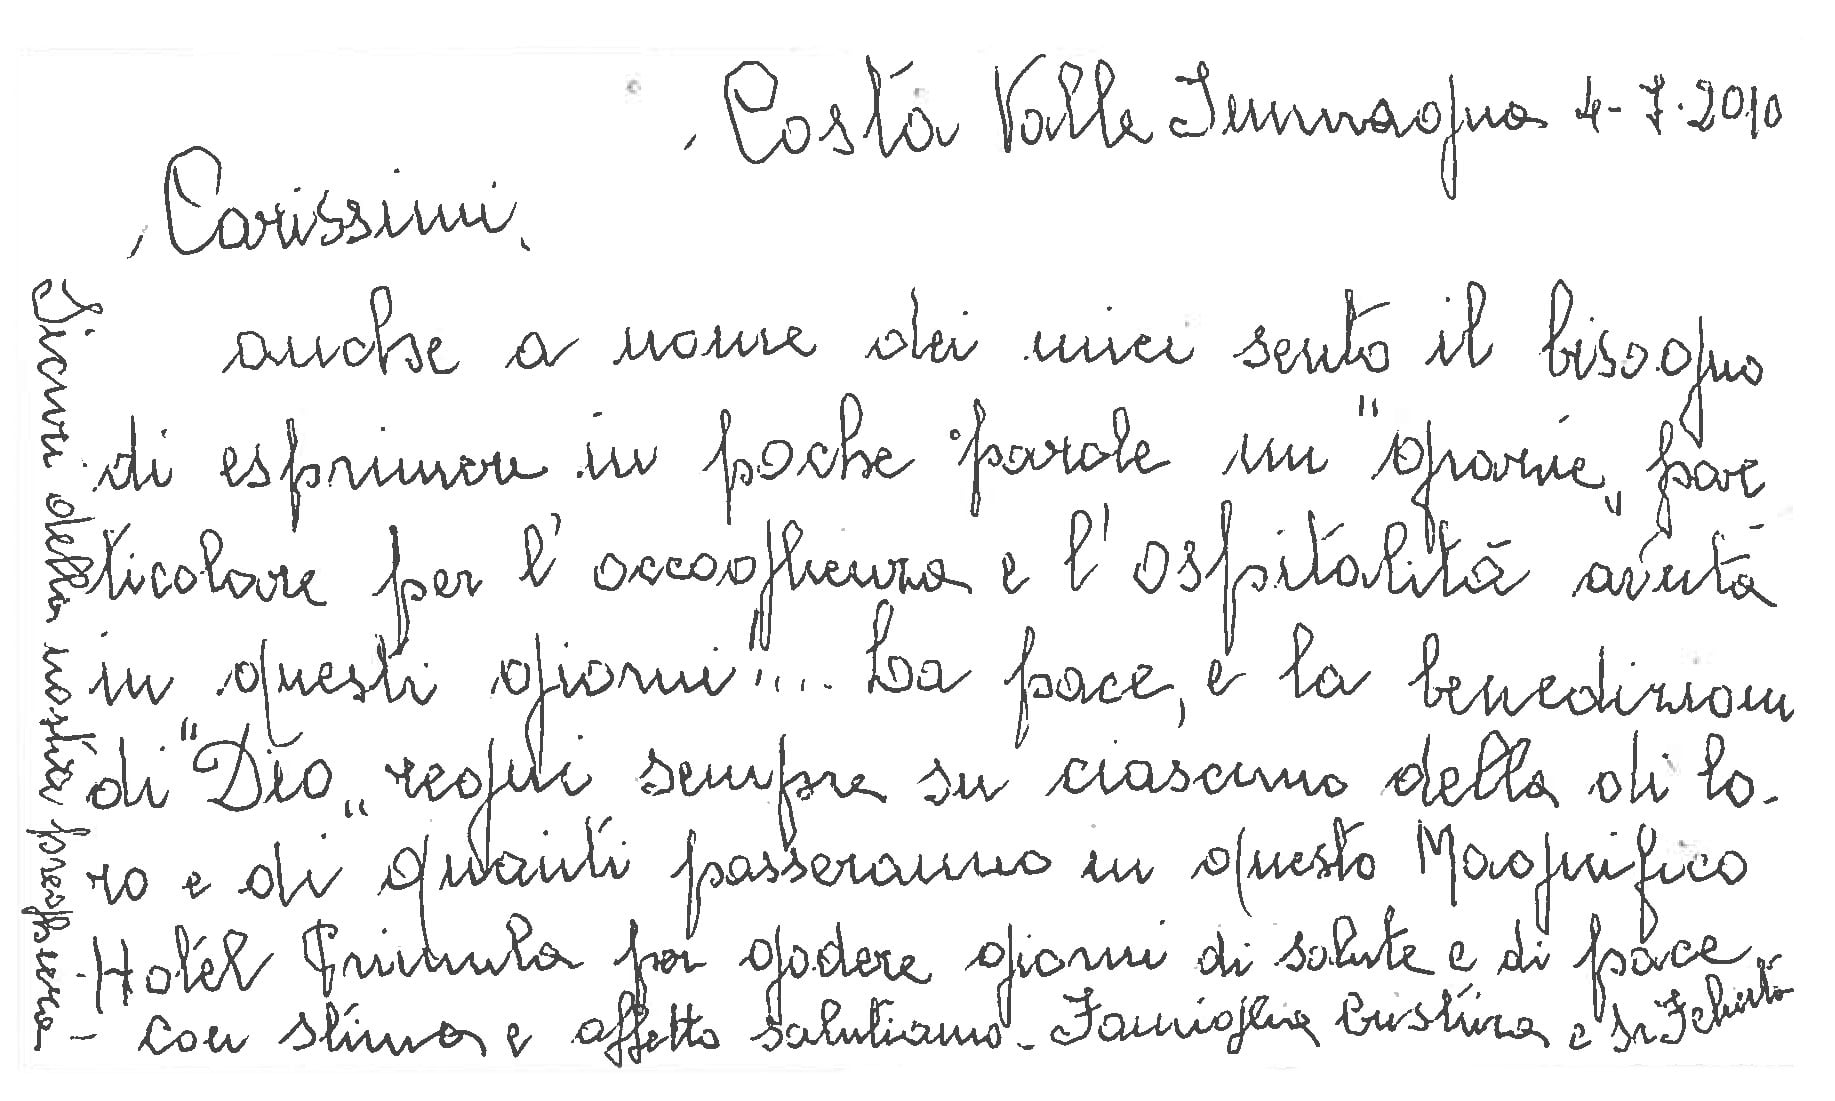 Costa Valle Immagna 4-7-2010
Carissimi,
anche a nome dei miei sento il bisogno
di esprimere in poche parole un "grazie" par
ticolare per l'accoglienza e l'ospitalità avuta
in questi giorni"... La pace, e la benedizioni
di "Dio" regni sempre su ciascuno della di lo-
ro e di quanti passeranno in questo Magnifico
Hotel Primula per godere giorni di salute e di pace
- con stima e affetto salutiamo - Famiglia e Sr
Sicuri della nostra preghiera